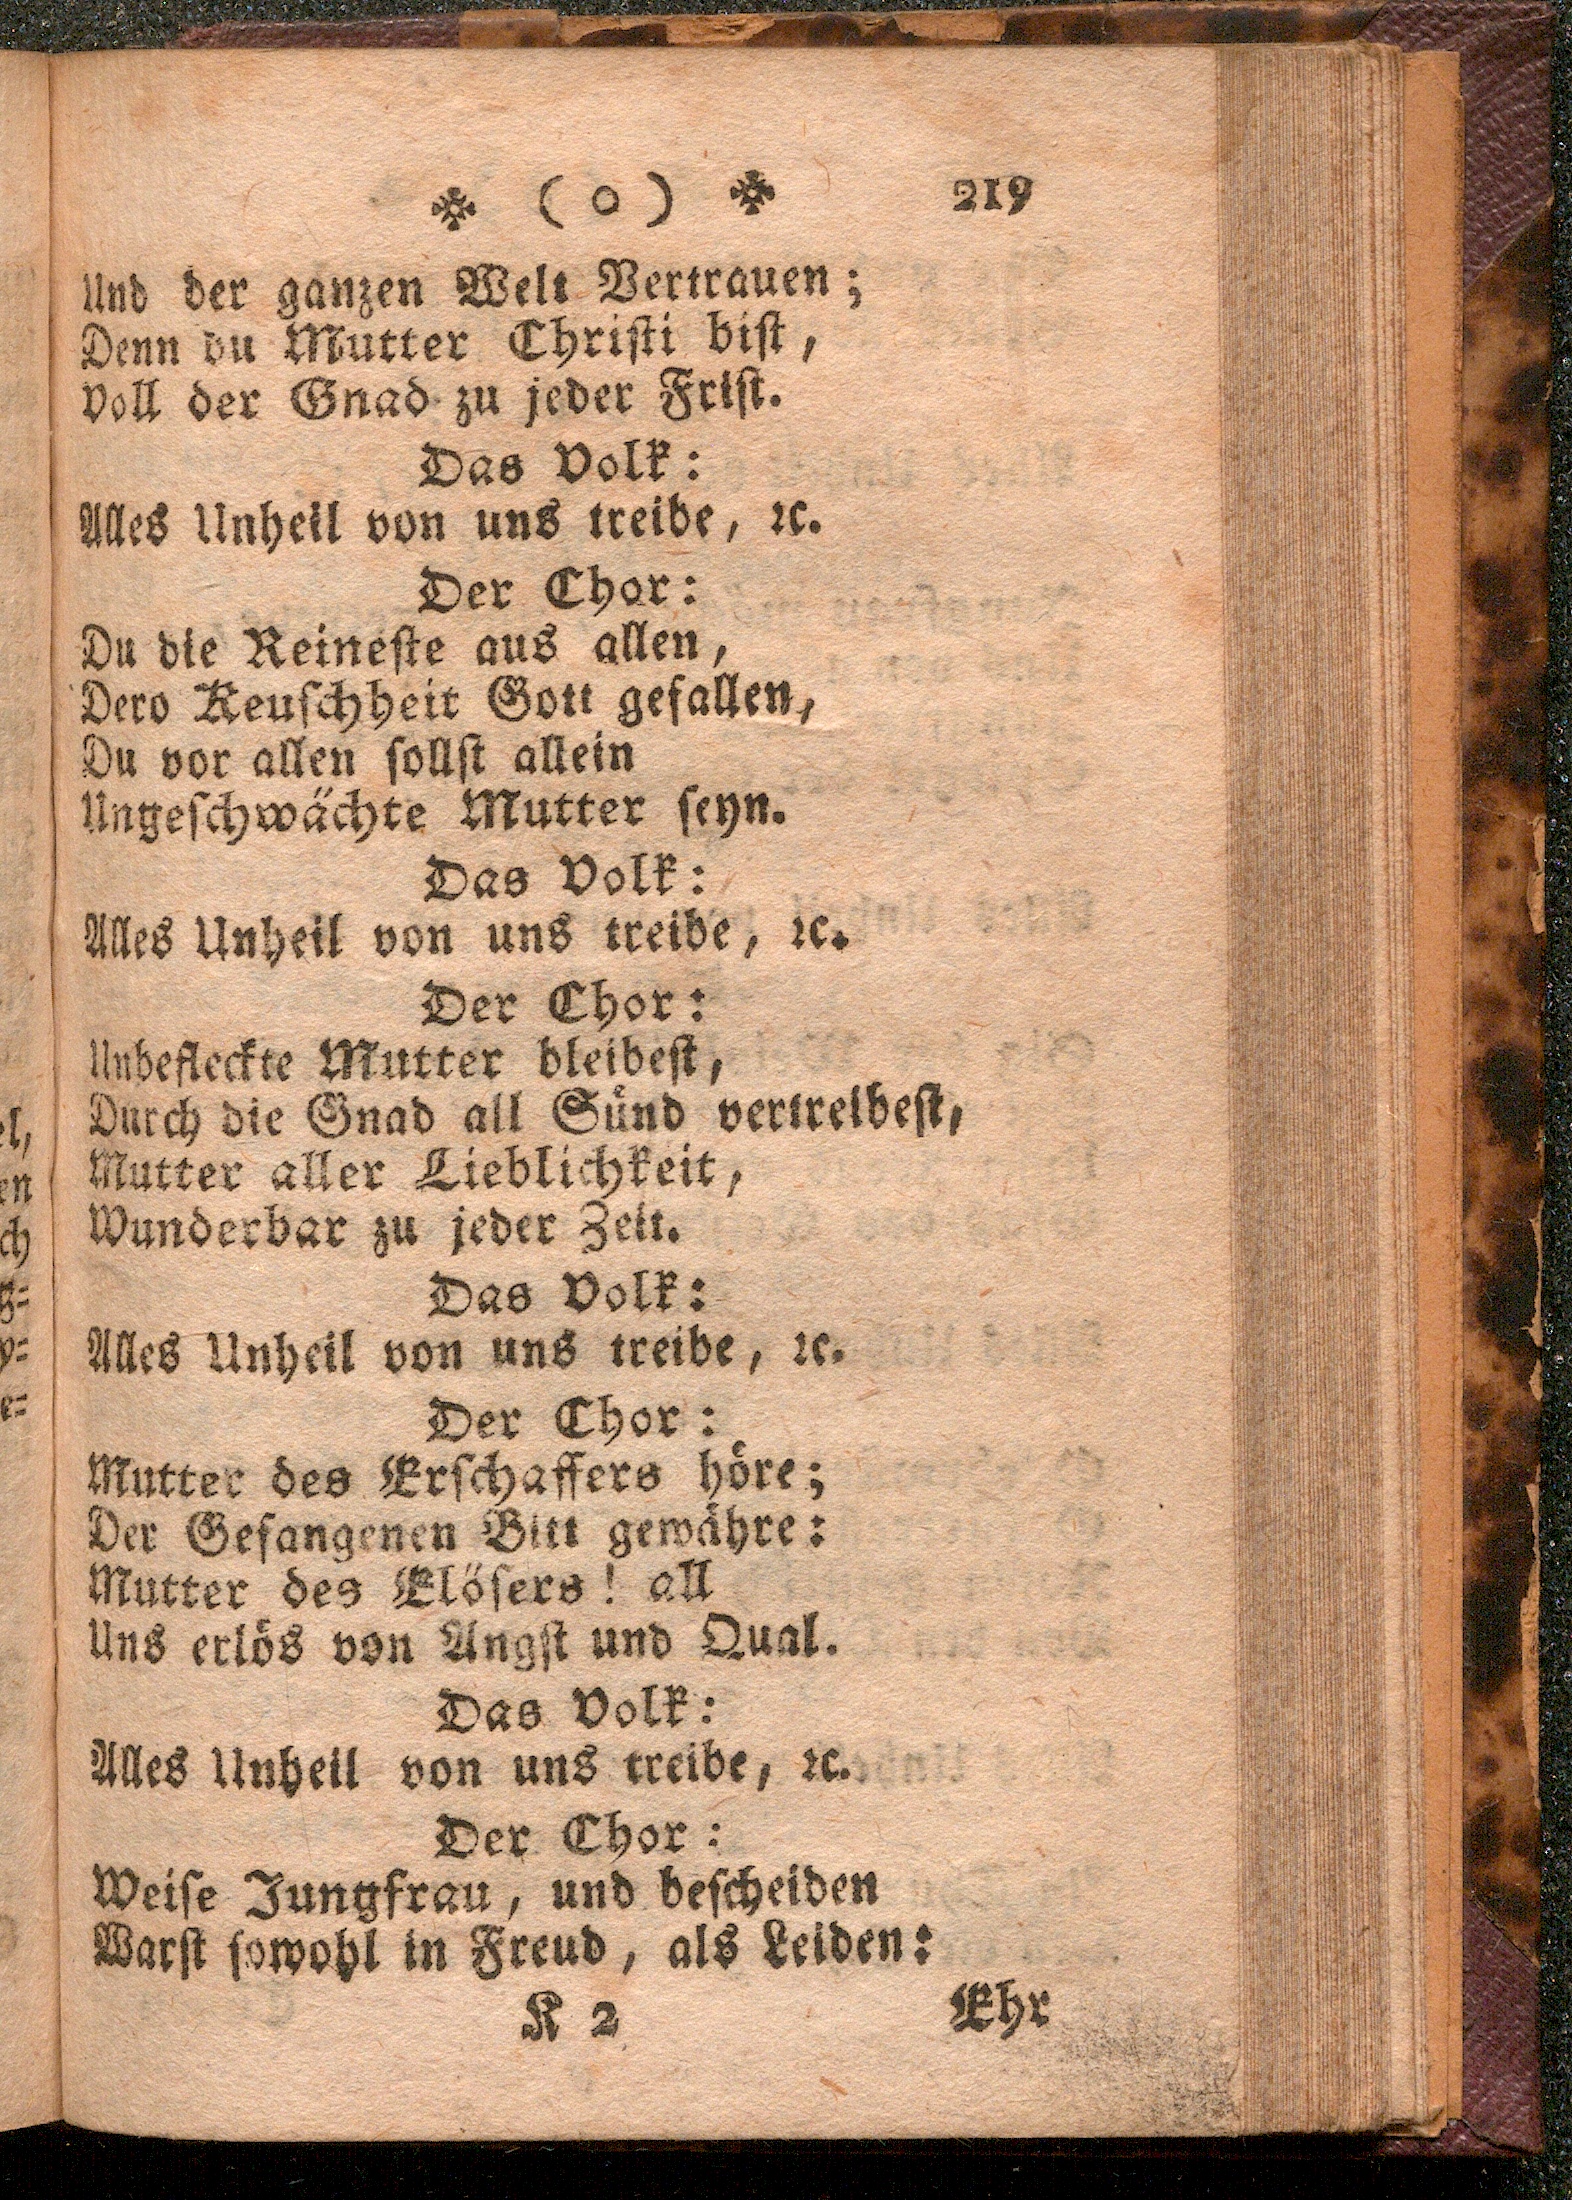 ( o ) 219
Und der ganzen Welt Vertrauen;
Denn du Mutter Christi bist,
Voll der Gnad zu jeder Frist.
Das Volk:
Alles Unheil von uns treibe, ꝛc.
Der Chor:
Du die Reineste aus allen,
Dero Keuschheit Gott gefallen,
Du vor allen sollst allein
Ungeschwächte Mutter seyn.
Das Volk:
Alles Unheil von uns treibe, ꝛc.
Der Chor:
Unbefleckte Mutter bleibest,
Durch die Gnad all Sünd vertreibest,
Mutter aller Lieblichkeit,
Wunderbar zu jeder Zeit.
Das Volk:
Alles Unheil von uns treibe, ꝛc.
Der Chor:
Mutter des Erschaffers höre;
Der Gefangenen Bitt gewähre:
Mutter des Elösers! all
Uns erlös von Angst und Qual.
Das Volk:
Alles Unheil von uns treibe, ꝛc.
Der Chor:
Weise Jungfrau, und bescheiden
Warst sowohl in Freud, als Leiden:
K 2 Ehr